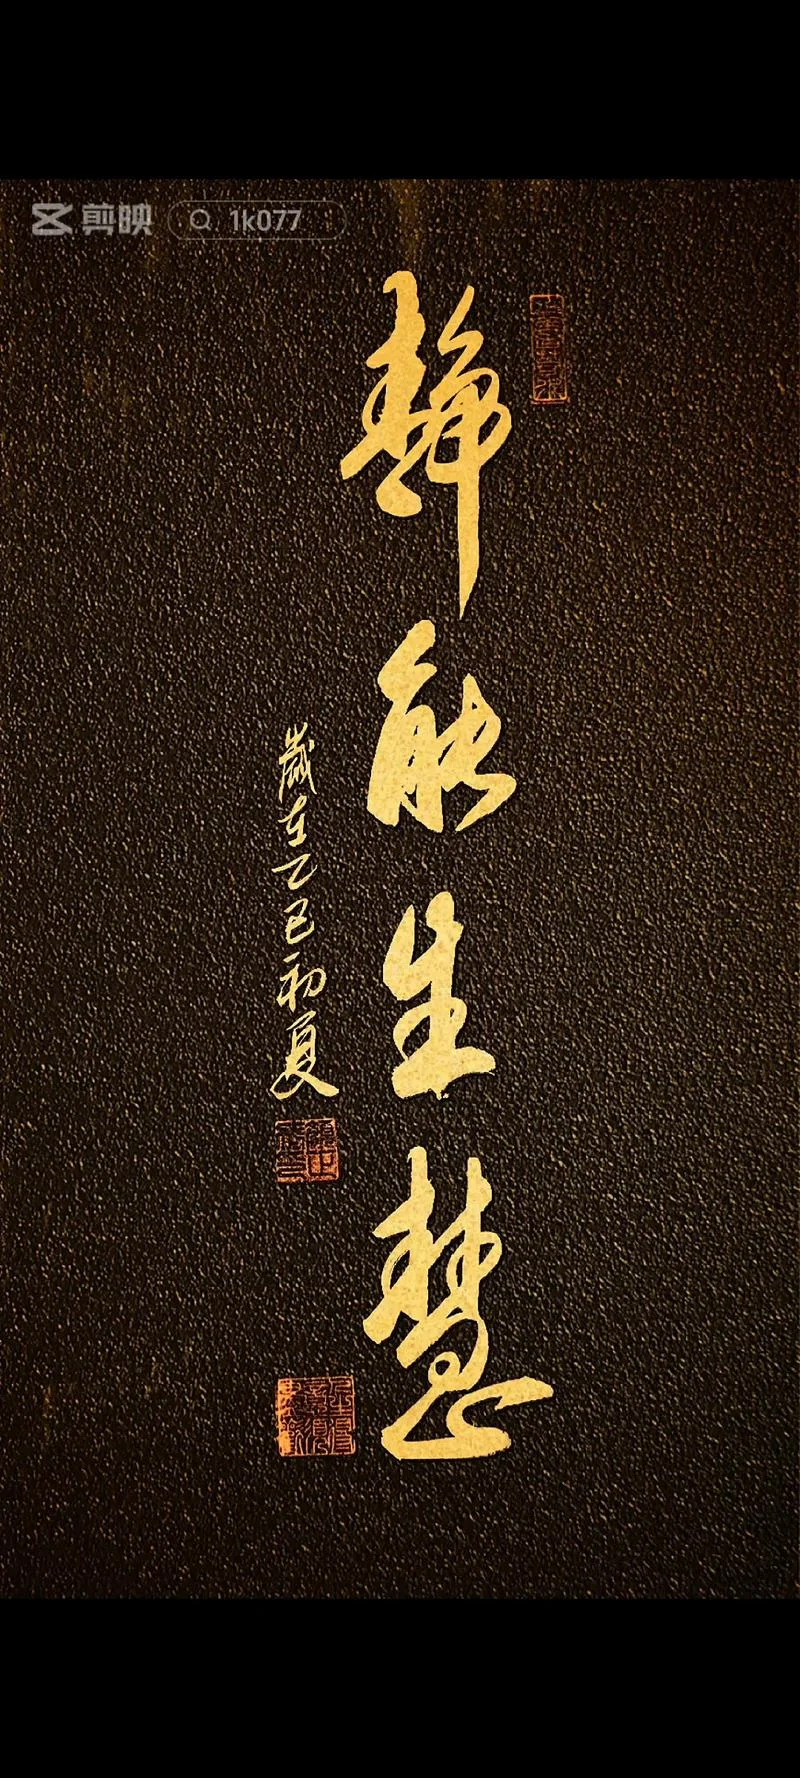 剪映
1k077
靜能生慧
歲在乙巳初夏